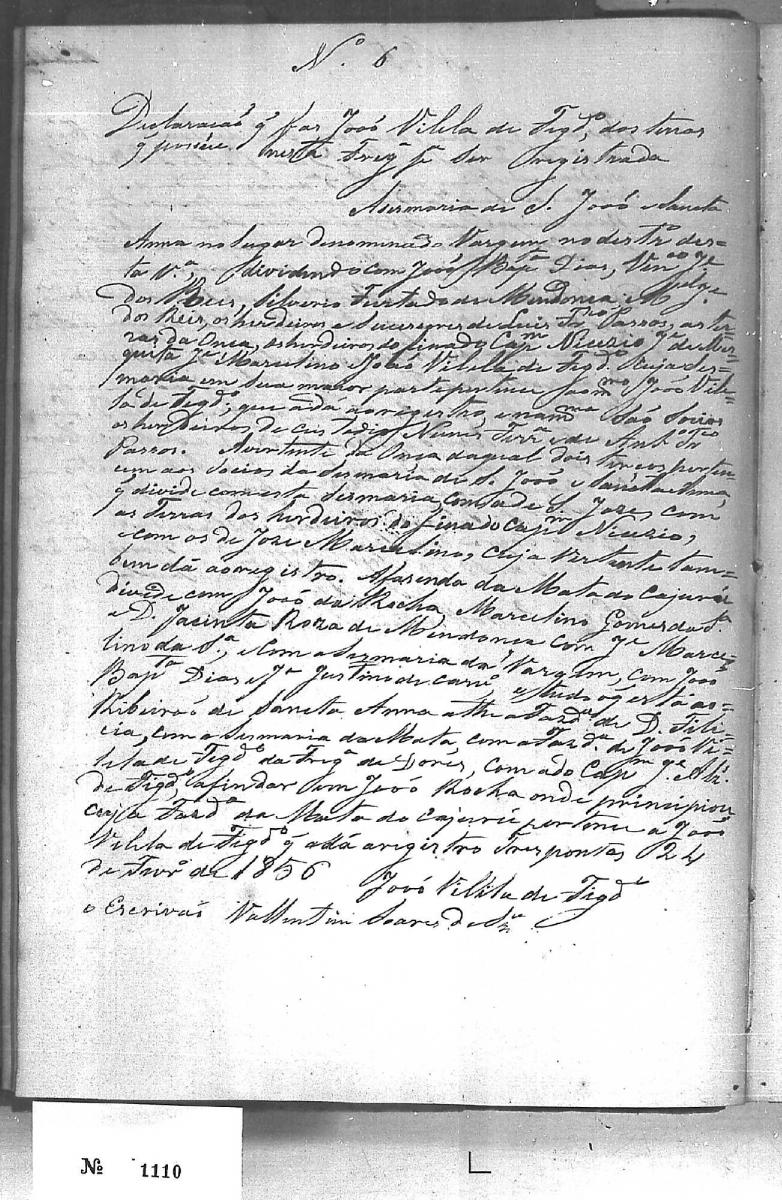 N.º 6
Declaração q̃ fas João Vilela de Figdº, das terras
q̃ posúe nesta Freg.ª p.ª ser registrada
A sesmaria de S. João e Sancta
Anna no lugar denominado Vargem, no destrº des-
ta V.ª, dividindo com João Bap.ta Dias, Ven.co J.e
dos Reis, Silverio Furtado de Mendonca e M.el J.e
dos Reis, os herdeiros e sucessores de Luis Fr.co Passos, as ter-
ras da Onca, os herdeiros do finado Cap.m Nicezio J.e de Mes-
quita J.e Marcelino João Vilella de Figdº. Cuja ses-
maria em sua maior parte pertence ao m.mo João Vile-
la de Figdº, que a dá ao registro, e na m.ma São Socios
os herdeiros de Custodio Nunes Ferr.ª e de Ant.º Fr.co
Passos. A vertente da Onca da qual dois tercos perten-
cem aos socios da sesmaria de S. João e Sancta Anna,
q̃ divide com esta sesmaria, com a de S. Joze, com
as Terras dos herdeiros do finado Cap.m Nicezio,
e com os de Joze Marcelino, cuja vertente tam-
bem dá ao registro. A fasenda da Mata do Cajurú
divide com João da Rocha Marcelino Gomes da S.ª
e D. Jacinta Roza de Mendonca com J.e Marce-
lino da S.ª, e com a Sesmaria da Vargem, com João
Bap.ta Dias e J.e Justino de Carv.º
Ribeirão de Sancta Anna athe a Fazd.ª de D. Feli-
cia, com a Sesmaria da Mata, com a Fazd.ª de João Vi-
lela de Figdº da Freg.ª de Dores, com a do Cap.m J.e Alz.
de Figdº a findar com João Rocha onde principiou
cuja Fazd.ª da Mata do Cajurú pertence a João
Vilela de Figdº q̃ a dá a registro Tres pontas 24
de Fevrº de 1856 João Vilela de Figdº
o Escrivão Vallentim Soares de S.ª
Nº 1110